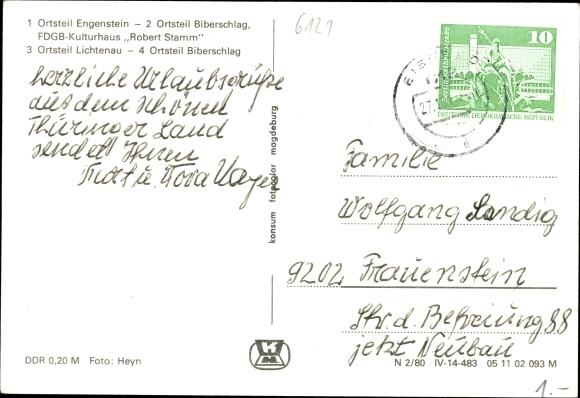 1 Ortsteil Engenstein – 2 Ortsteil Biberschlag,
FDGB-Kulturhaus „Robert Stamm"
3 Ortsteil Lichtenau – 4 Ortsteil Biberschlag
6121
herzliche Urlaubsgrüße
aus dem schönen
Thüringer Land
sendet Ihnen
u.
konsum fotocolor magdeburg
10
DEUTSCHE DEMOKRATISCHE REPUBLIK
27.
Familie
Wolfgang Sandig
9202 Frauenstein
Str. d. Befreiung 88
jetzt Neubau
DDR 0,20 M Foto: Heyn
N 2/80 IV-14-483 05 11 02 093 M
1.-